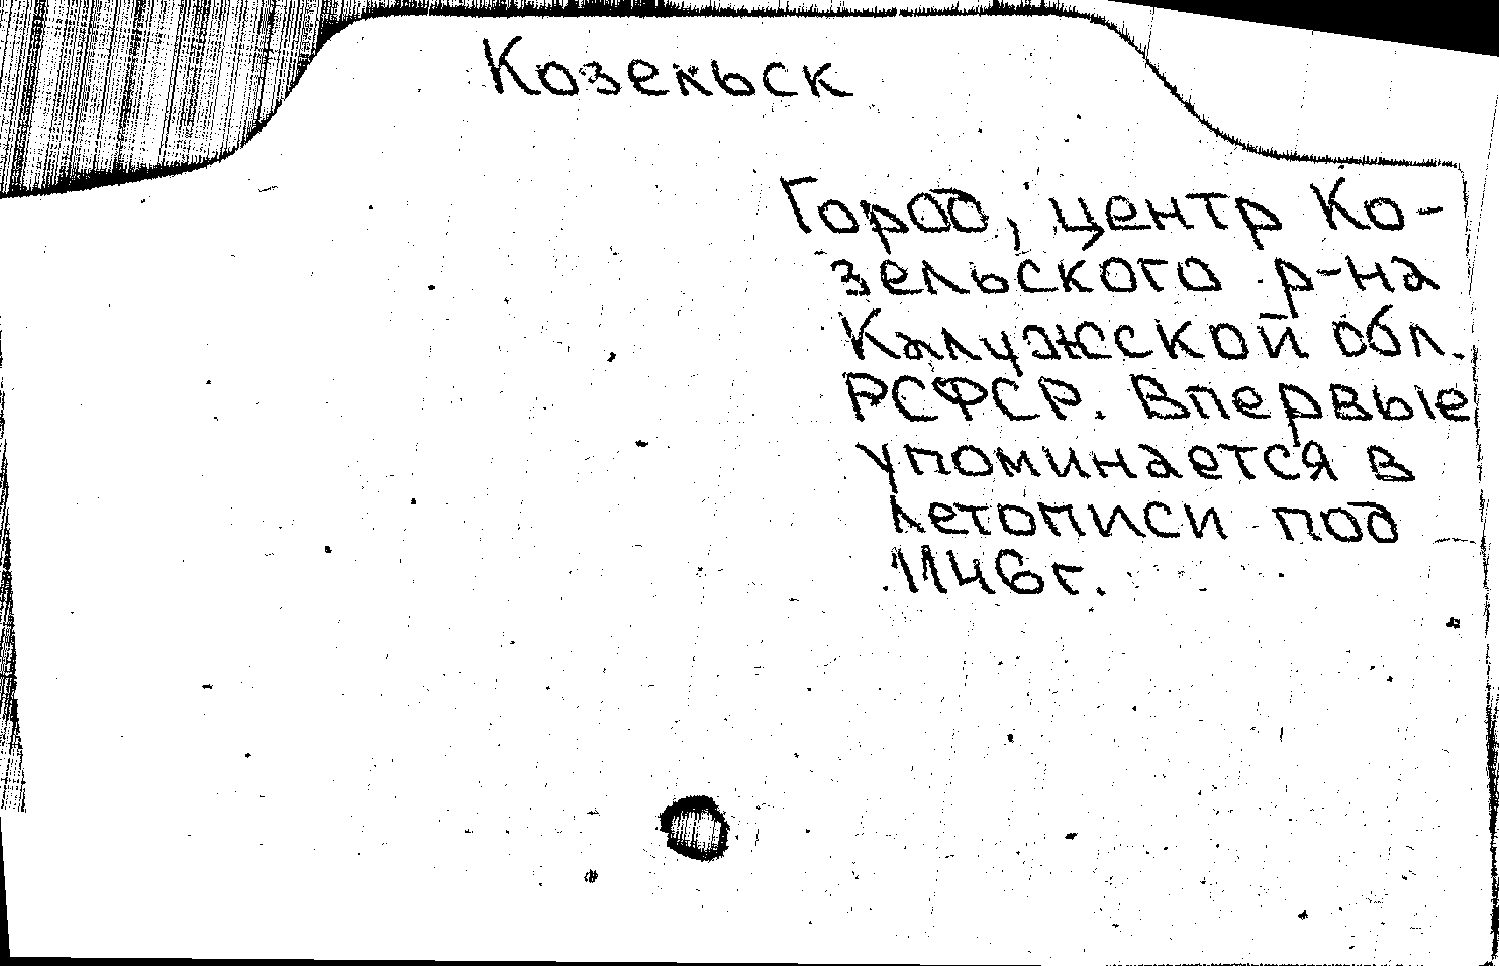 Козельск
Город, центр Ко-
зельского р-на
Калужской обл.
РСФСР. Впервые
упоминается в
летописи под
1146г.